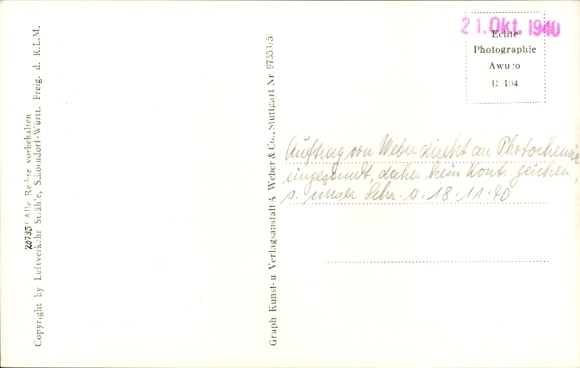 20735 Alle Rechte vorbehalten
Copyright by Luftverkehr Strähle, Schorndorf-Württ. Freig. d. R.L.M.
Graph Kunst-u Verlagsanstalt A Weber & Co., Stuttgart Nr 97553/5
21. Okt. 1940
Echte
Photographie
Awuco
R 104
Auftrag von Weber direkt an Photochemie
eingesandt, daher kein Kontr. zeichen,
s. unser Schr. v. 18.11.40